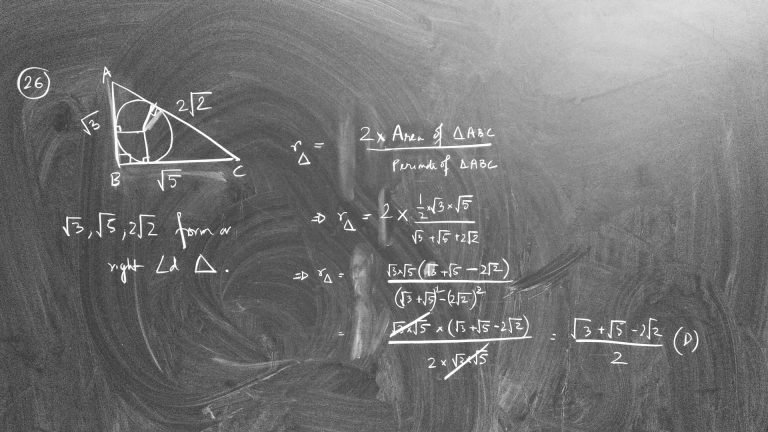 26
A
√3
2√2
B
√5
C
√3, √5, 2√2 form a
right ∠d Δ.
r_Δ = 2 × Area of ΔABC / Perimeter of ΔABC
⇒ r_Δ = 2 × ½×√3×√5 / √3 + √5 + 2√2
⇒ r_Δ = √3×√5 (√3 + √5 − 2√2) / (√3 + √5)² − (2√2)²
= √3×√5 × (√3 + √5 − 2√2) / 2 × √3×√5 = √3 + √5 − 2√2 / 2 (D)